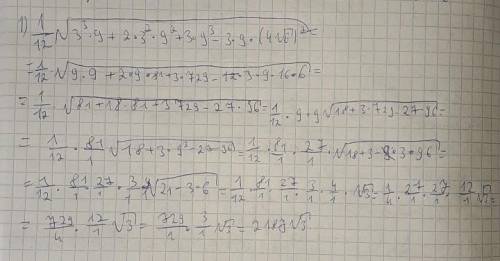 1) 1/12 √(3³·9 + 2·3²·9² + 3·9³ - 3·9·(4√6)²) =
= 1/12 · √(9·9 + 2·9·81 + 3·729 - 12·3·9·16·6) =
= 1/12 · √(81 + 18·81 + 3·729 - 27·96) = 1/12 · 9·9 √(18 + 3·729·27·96) =
= 1/12 · 81/1 √(18 + 3·9² - 27·96) = 1/12 · 81/1 · 27/1 · √(18 + 3 - 9·3·96) =
= 1/12 · 81/1 · 27/1 · 3/1 · 4 √(21 - 3·6) = 1/12 · 81/1 · 27/1 · 3/1 · 4/1 · √3 = 1/4 · 27/1 · 27/1 · 12/1 √3 =
= 729/4 · 12/1 √3 = 729/1 · 3/1 √3 = 2187√3